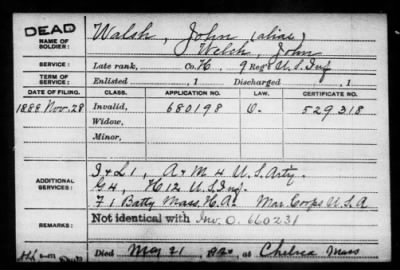 DEAD
NAME OF SOLDIER:
Walsh, John (alias)
Welsh, John
SERVICE: Late rank, Co. H, 9 Reg't U.S. Inf
TERM OF SERVICE: Enlisted , 1 Discharged , 1
DATE OF FILING. CLASS. APPLICATION NO. LAW. CERTIFICATE NO.
1888 Nov. 28 Invalid, 680198 529318
Widow,
Minor,
ADDITIONAL SERVICES:
I & L 1, A & M 4 U.S. Arty.
G 4, H 12 U.S. Inf.
F 1 Batty Mass. H.A. Mar. Corps U.S.A
REMARKS: Not identical with Inv. O. 660231
Died May 21, at Chelsea Mass